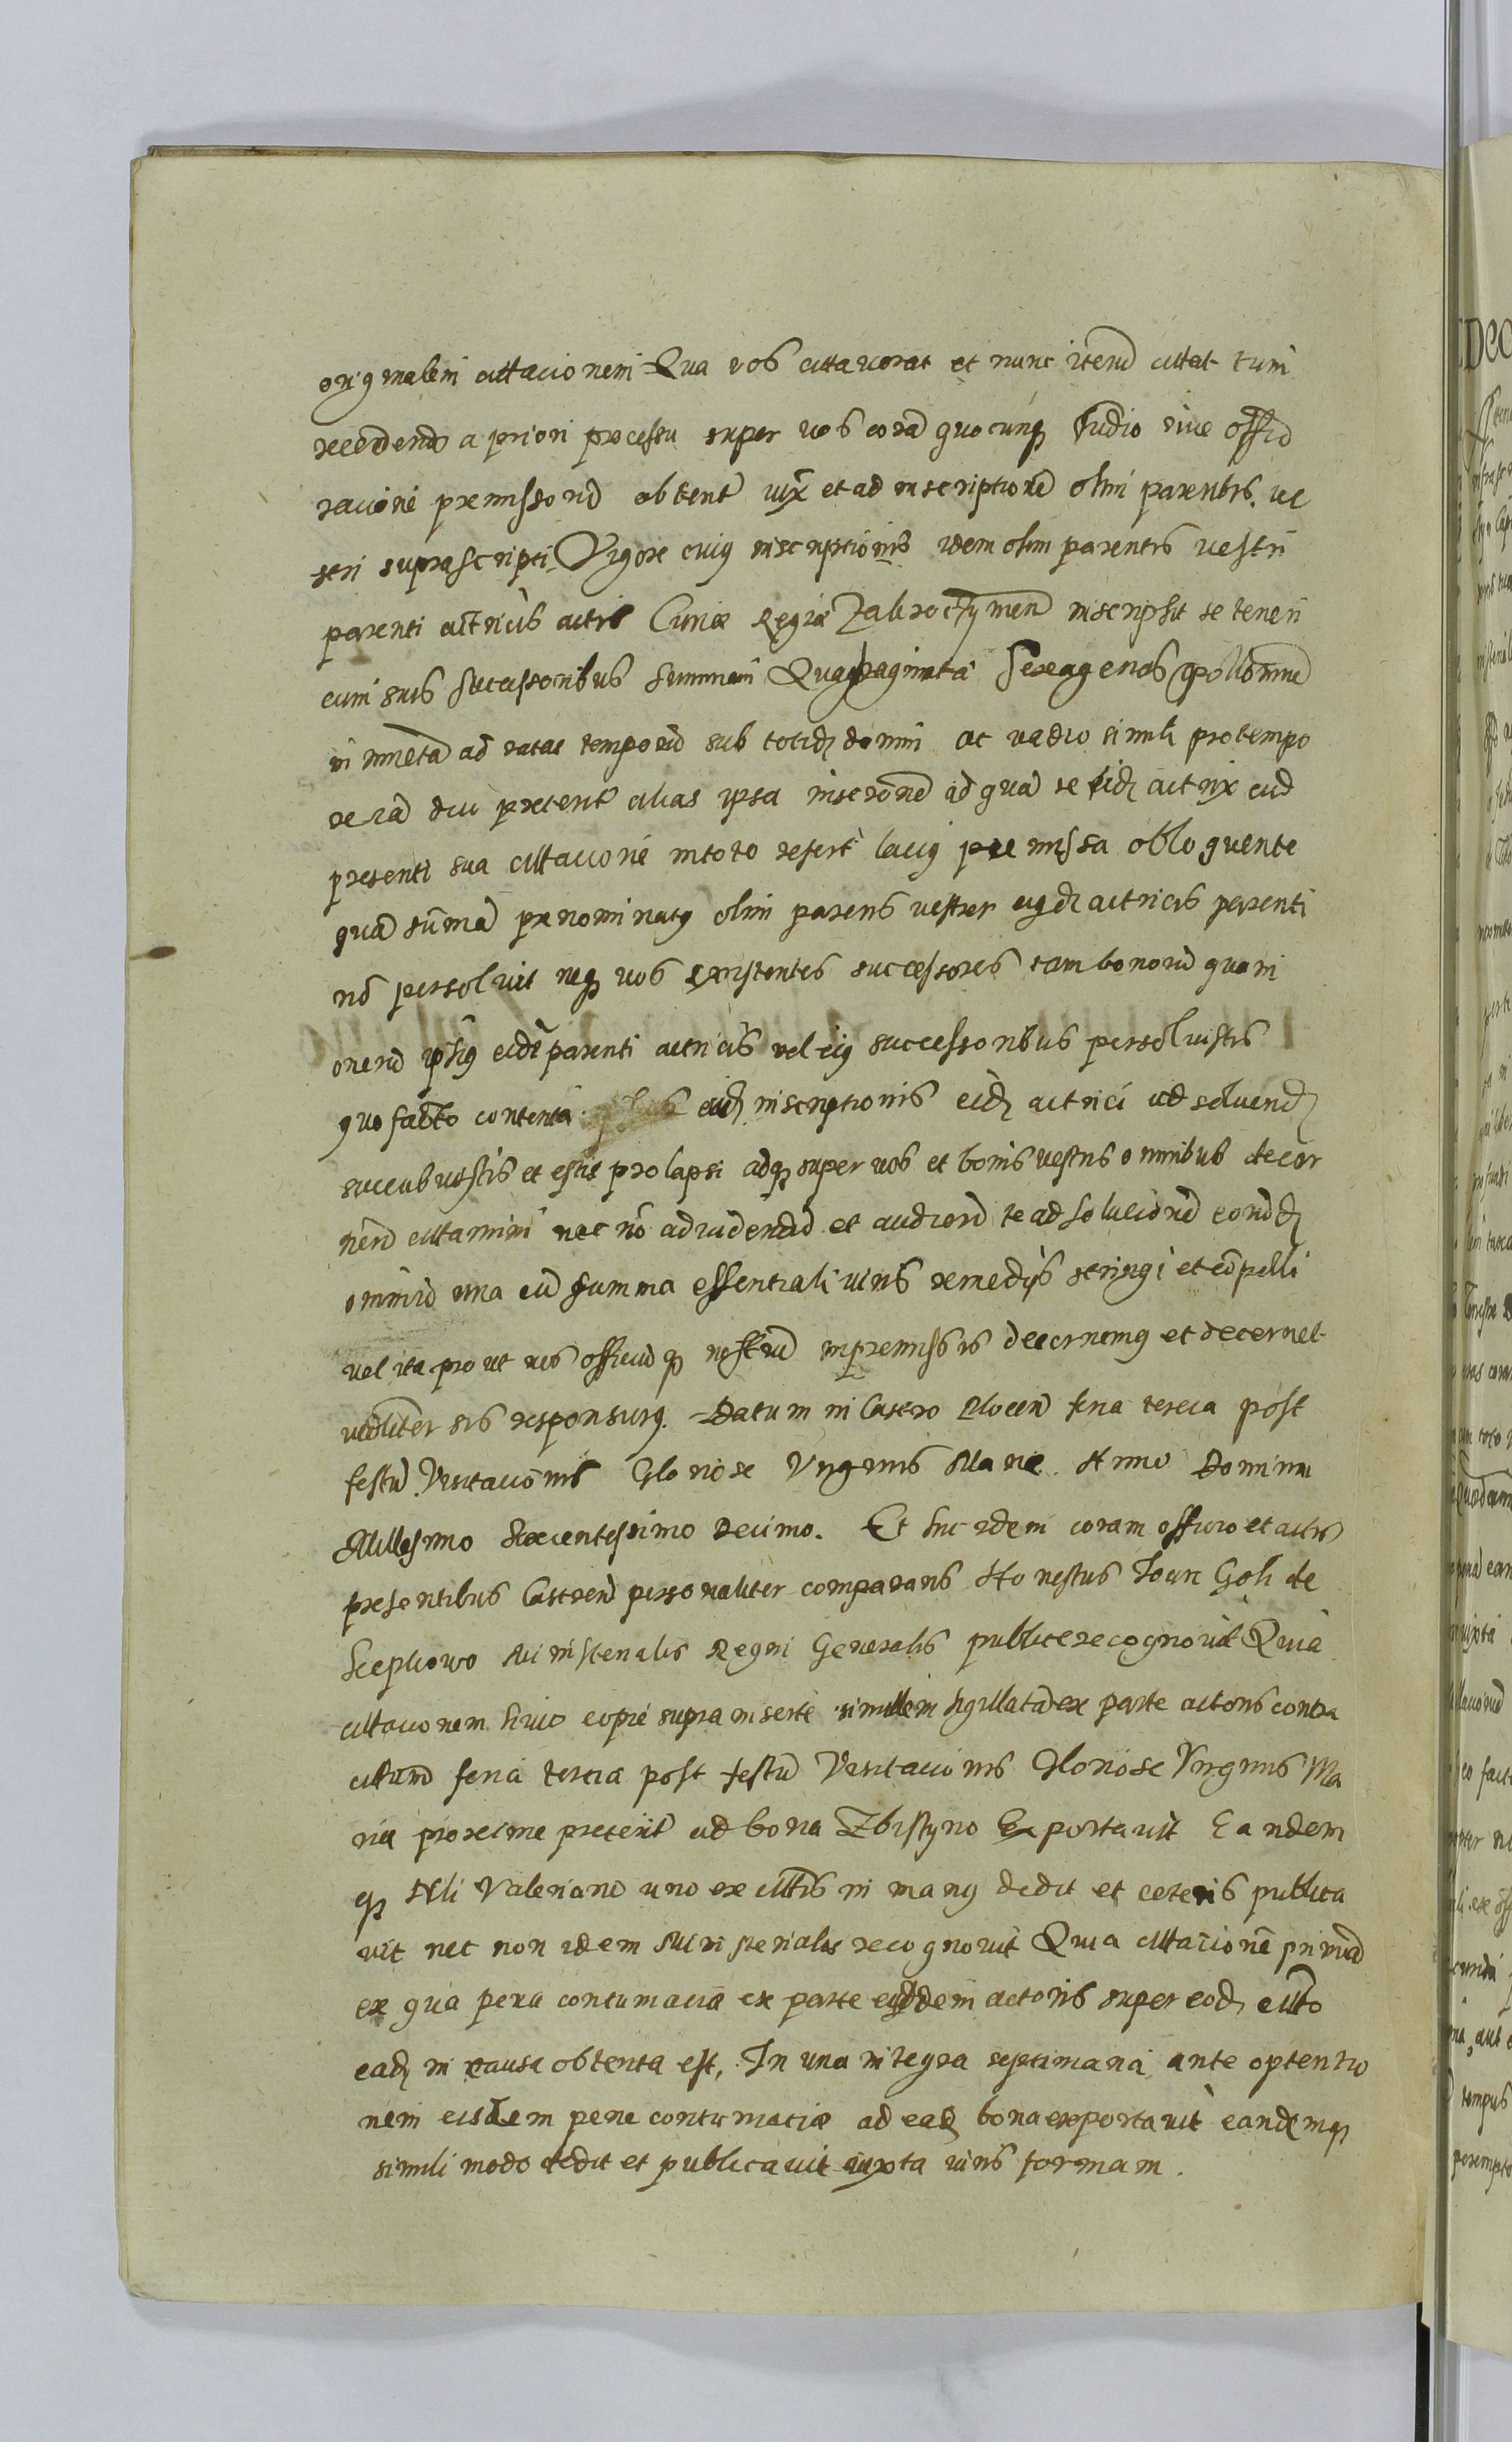 originalem cittacionem Qua vos cittaverat et nunc iterũ cittat tum
recedendo a priori processu super vos corã quocunq Iudio sive offio
racione premissorũ obtent iux et ad inscriptionẽ olim parentis ve
stri suprascripti Vigore cuiq inscriptionis idem olim parentis vestri
parenti actricis actis Curiæ Regiæ Zakroczymen inscripsit se teneri
cum suis successoribus summam Quadraginta Sexagenas
in ad ratas temporũ sub totidẽ domini ac vadio simili pro tempo
re iã diu preterit alias ipsa ad quã se eidẽ actrix cũ
presenti sua cittacione in toto refert laciq premissa obloquente
quã sũmã prenominatq olim parens vester eiqdẽ actricis parenti
nõ persolvit neq vos existentes successores tam bonorũ quam
onerũ ipsiq eidẽ parenti actricis vel eiq successoribus persolvistis
quo facto contenta eiusdẽ inscriptionis eidẽ actrici ad solvendũ
succubuistis et estis prolapsi adq super vos et bonis vestris omnibus decer
nend cittamini nec nõ ad videndũ et audiend te ad solucionẽ eorundẽ
omniũ una cũ summa essentiali iuris remedijs stringi et cõpelli
vel ita prout ius officiũ q nostrũ in premissis decernemq et decernet
iudlirter sis responsurq. Datum in Castro Plocen feria tercia post
festũ Visitacionis Gloriose Virginis Marie Anno Domini
Millesimo Sexcentessimo Decimo. Et hic idem coram officio et actis
presentibus Castren personaliter comparans Honestus Joan Goli de
Sceptiowo Ministerialis Regni Generalis publice recognovit Quia
cittacionem huic copie supra inserte similem sigillatã ex parte actoris contra
cittum feria tercia post festũ Visitacionis Gloriose Virginis Ma
rie proxime preterit ad bona Zbistyno Exportavit Eandem
q Nli Valeriano uno ex cittis in manq dedit et ceteris publica
vit nec non idem Ministerialis recognovit Quia cittacionẽ primã
ex qua pena contumacia ex parte eiusdem actoris super eodẽ citto
eadẽ in causa obtenta est, In una integra septimana ante optentio
nem eiusdem pene contumaciæ ad eadẽ bona exportavit eandemq
simili modo dedit et publicavit iuxta iuris formam.